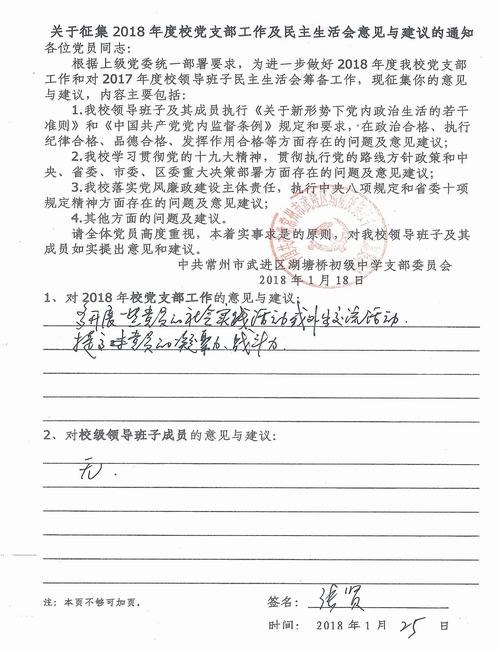 关于征集 2018 年度校党支部工作及民主生活会意见与建议的通知
各位党员同志：
根据上级党委统一部署要求，为进一步做好 2018 年度我校党支部
工作和对 2017 年度校领导班子民主生活会筹备工作，现征集你的意见
与建议，内容主要包括：
1.我校领导班子及其成员执行《关于新形势下党内政治生活的若干
准则》和《中国共产党党内监督条例》规定和要求，在政治合格、执行
纪律合格、品德合格、发挥作用合格等方面存在的问题及意见建议；
2.我校学习贯彻党的十九大精神，贯彻执行党的路线方针政策和中
央、省委、市委、区委重大决策部署方面存在的问题及意见建议；
3.我校落实党风廉政建设主体责任，执行中央八项规定和省委十项
规定精神方面存在的问题及意见建议；
4.其他方面的问题及建议。
请全体党员高度重视，本着实事求是的原则，对我校领导班子及其
成员如实提出意见和建议。
中共常州市武进区湖塘桥初级中学支部委员会
2018 年 1 月 18 日
1、对 2018 年校党支部工作的意见与建议：
多开展一些党员的社会实践活动或外出交流活动.
提高党员的凝聚力、战斗力.
2、对校级领导班子成员的意见与建议：
无.
注：本页不够可加页。
签名：张贤
时间： 2018 年 1 月 25 日